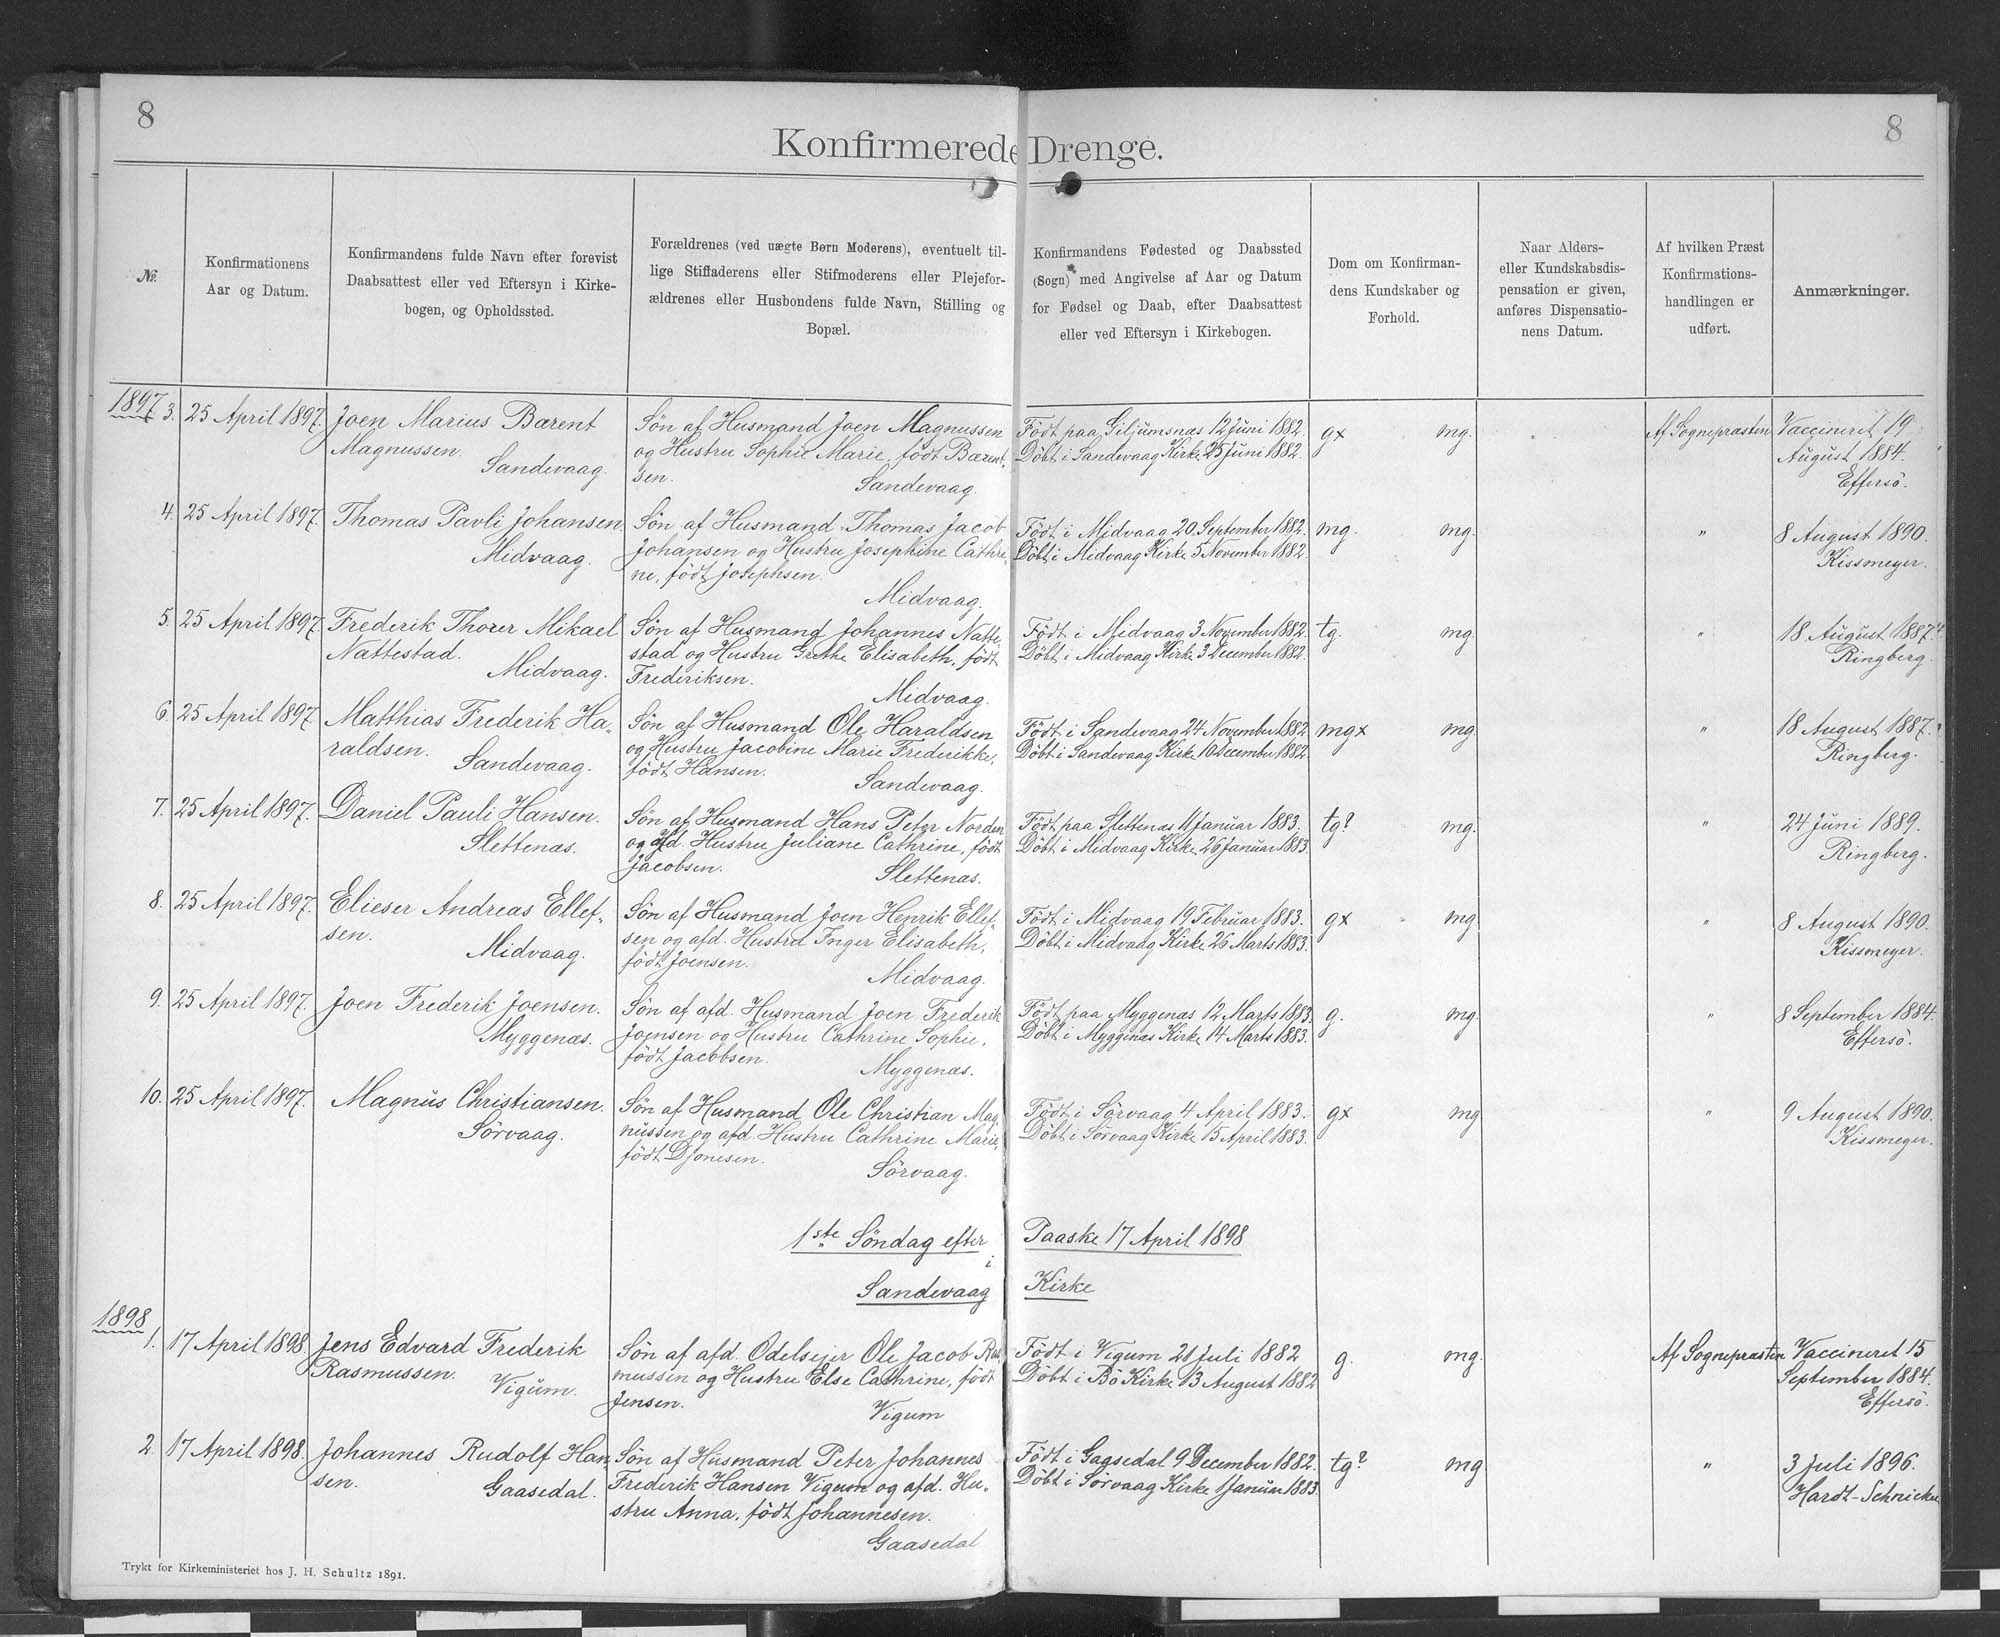 8
8
Konfirmerede Drenge.
№.
Konfirmationens
Aar og Datum.
Konfirmandens fulde Navn efter forevist
Daabsattest eller ved Eftersyn i Kirke-
bogen, og Opholdssted.
Forældrenes (ved uægte Børn Moderens), eventuelt til-
lige Stiffaderens eller Stifmoderens eller Plejefor-
ældrenes eller Husbondens fulde Navn, Stilling og
Bopæl.
Konfirmandens Fødested og Daabssted
(Sogn) med Angivelse af Aar og Datum
for Fødsel og Daab, efter Daabsattest
eller ved Eftersyn i Kirkebogen.
Dom om Konfirman-
dens Kundskaber og
Forhold.
Naar Alders-
eller Kundskabsdis-
pensation er given,
anføres Dispensatio-
nens Datum.
Af hvilken Præst
Konfirmations-
handlingen er
udført.
Anmærkninger.
1897
3. 25 April 1897.
Joen Marius Barent
Magnussen.
Sandevaag.
Søn af Husmand Joen Magnussen
og Hustru Sophie Marie, født Barent-
sen.
Sandevaag.
Født paa Giljumsnæs 12 Juni 1882.
Döbt i Sandevaag Kirke 25 Juni 1882.
gx mg.
Af Sognepræsten
Vaccineret 19
August 1884.
Effersö.
4. 25 April 1897.
Thomas Pavli Johansen
Midvaag.
Søn af Husmand Thomas Jacob
Johansen og Hustru Josephine Cathri-
ne, født Josephsen.
Midvaag.
Født i Midvaag 20 September 1882.
Döbt i Midvaag Kirke 5 November 1882.
mg. mg.
"
8 August 1890.
Kissmeyer.
5. 25 April 1897.
Frederik Thorer Mikael
Nattestad.
Midvaag.
Søn af Husmand Johannes Natte-
stad og Hustru Grethe Elisabeth, født
Frederiksen.
Midvaag.
Født i Midvaag 3 November 1882.
Döbt i Midvaag Kirke 3 December 1882.
tg. mg.
"
18 August 1887.
Ringberg.
6. 25 April 1897.
Matthias Frederik Ha-
raldsen.
Sandevaag.
Søn af Husmand Ole Haraldsen
og Hustru Jacobine Marie Frederikke,
født Hansen.
Sandevaag.
Født i Sandevaag 24 November 1882
Döbt i Sandevaag Kirke 10 December 1882.
mgx mg.
"
18 August 1887.
Ringberg.
7. 25 April 1897.
Daniel Pauli Hansen.
Slettenæs.
Søn af Husmand Hans Peter Norden
og afd. Hustru Juliane Cathrine, født
Jacobsen.
Slettenæs.
Født paa Slettenæs 11 Januar 1883.
Döbt i Midvaag Kirke 26 Januar 1883.
tg? mg.
"
24 Juni 1889.
Ringberg.
8. 25 April 1897.
Elieser Andreas Ellef-
sen.
Midvaag.
Søn af Husmand Joen Henrik Ellef-
sen og afd. Hustru Inger Elisabeth,
født Joensen.
Midvaag.
Født i Midvaag 19 Februar 1883.
Döbt i Midvaag Kirke 26 Marts 1883.
gx mg.
"
8 August 1890.
Kissmeyer.
9. 25 April 1897.
Joen Frederik Joensen.
Myggenæs.
Søn af afd. Husmand Joen Frederik
Joensen og Hustru Cathrine Sophie,
født Jacobsen.
Myggenæs.
Født paa Myggenæs 12 Marts 1883.
Döbt i Myggenæs Kirke 14 Marts 1883.
g. mg.
"
8 September 1884.
Effersö.
10. 25 April 1897.
Magnus Christiansen.
Sörvaag.
Søn af Husmand Ole Christian Mag-
nussen og afd. Hustru Cathrine Marie,
født Djonesen.
Sörvaag.
Født i Sörvaag 4 April 1883.
Döbt i Sörvaag Kirke 15 April 1883.
gx mg
"
9 August 1890.
Kissmeyer.
1ste Söndag efter Paaske 17 April 1898
i
Sandevaag Kirke
1898
1. 17 April 1898.
Jens Edvard Frederik
Rasmussen.
Vigum.
Søn af afd. Odelsejer Ole Jacob Ras-
mussen og Hustru Else Cathrine, født
Jensen.
Vigum
Født i Vigum 21 Juli 1882
Döbt i Bö Kirke 13 August 1882
g. mg.
Af Sognepræsten
Vaccineret 15
September 1884.
Effersö.
2. 17 April 1898.
Johannes Rudolf Han-
sen.
Gaasedal.
Søn af Husmand Peter Johannes
Frederik Hansen Vigum og afd. Hu-
stru Anna, født Johannesen.
Gaasedal
Født i Gaasedal 9 December 1882.
Döbt i Sörvaag Kirke 1 Januar 1883.
tg? mg
"
3 Juli 1896.
Hardt-Schnicker
Trykt for Kirkeministeriet hos J. H. Schultz 1891.